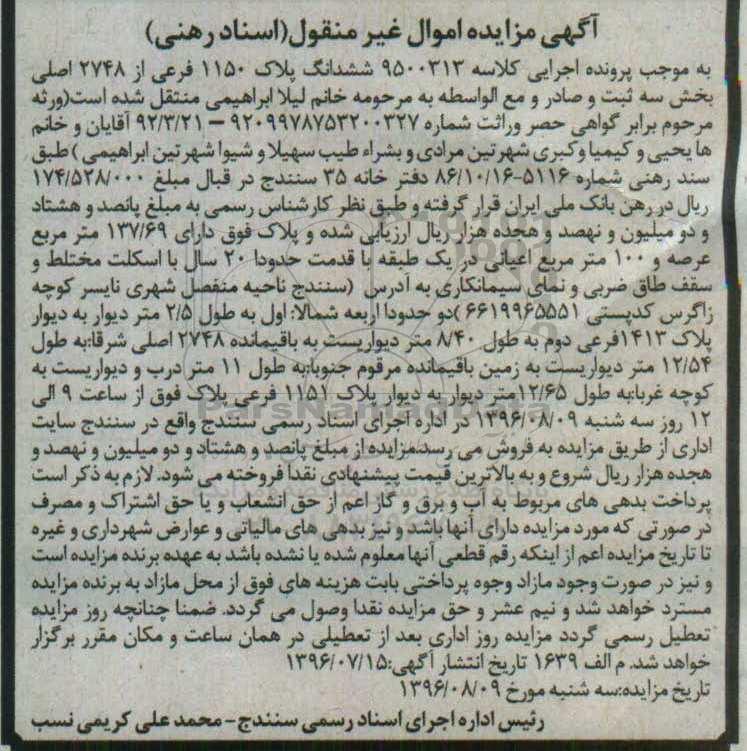 آگهی مزایده اموال غیر منقول(اسناد رهنی)
به موجب پرونده اجرایی کلاسه ۹۵۰۰۳۱۳ ششدانگ پلاک ۱۱۵۰ فرعی از ۲۷۴۸ اصلی
بخش سه ثبت و صادر و مع الواسطه به مرحومه خانم لیلا ابراهیمی منتقل شده است(ورثه
مرحوم برابر گواهی حصر وراثت شماره ۹۲۰۹۹۷۸۷۵۳۲۰۰۳۲۷ – ۹۲/۳/۲۱ آقایان و خانم
ها یحیی و کیمیا وکبری شهرتین مرادی و بشراء طیب سهیلا و شیوا شهرتین ابراهیمی ) طبق
سند رهنی شماره ۵۱۱۶-۸۶/۱۰/۱۶ دفتر خانه ۳۵ سنندج در قبال مبلغ ۱۷۴/۵۲۸/۰۰۰
ریال در رهن بانک ملی ایران قرار گرفته و طبق نظر کارشناس رسمی به مبلغ پانصد و هشتاد
و دو میلیون و نهصد و هجده هزار ریال ارزیابی شده و پلاک فوق دارای ۱۳۷/۶۹ متر مربع
عرصه و ۱۰۰ متر مربع اعیانی در یک طبقه با قدمت حدودا ۲۰ سال با اسکلت مختلط و
سقف طاق ضربی و نمای سیمانکاری به آدرس (سنندج ناحیه منفصل شهری نایسر کوچه
زاگرس کدپستی ۶۶۱۹۹۶۵۵۵۱)دو حدودا اربعه شمالا: اول به طول ۲/۵ متر دیوار به دیوار
پلاک ۱۴۱۳فرعی دوم به طول ۸/۴۰ متر دیواریست به باقیمانده ۲۷۴۸ اصلی شرقا:به طول
۱۲/۵۴ متر دیواریست به زمین باقیمانده مرقوم جنوبا:به طول ۱۱ متر درب و دیواریست به
کوچه غربا:به طول ۱۲/۶۵متر دیوار به دیوار پلاک ۱۱۵۱ فرعی پلاک فوق از ساعت ۹ الی
۱۲ روز سه شنبه ۱۳۹۶/۰۸/۰۹ در اداره اجرای اسناد رسمی سنندج واقع در سنندج سایت
اداری از طریق مزایده به فروش می رسد.مزایده از مبلغ پانصد و هشتاد و دو میلیون و نهصد و
هجده هزار ریال شروع و به بالاترین قیمت پیشنهادی نقدا فروخته می شود. لازم به ذکر است
پرداخت بدهی های مربوط به آب و برق و گاز اعم از حق انشعاب و یا حق اشتراک و مصرف
در صورتی که مورد مزایده دارای آنها باشد و نیز بدهی های مالیاتی و عوارض شهرداری و غیره
تا تاریخ مزایده اعم از اینکه رقم قطعی آنها معلوم شده یا نشده باشد به عهده برنده مزایده است
و نیز در صورت وجود مازاد وجوه پرداختی بابت هزینه های فوق از محل مازاد به برنده مزایده
مسترد خواهد شد و نیم عشر و حق مزایده نقدا وصول می گردد. ضمنا چنانچه روز مزایده
تعطیل رسمی گردد مزایده روز اداری بعد از تعطیلی در همان ساعت و مکان مقرر برگزار
خواهد شد. م الف ۱۶۳۹ تاریخ انتشار آگهی:۱۳۹۶/۰۷/۱۵
تاریخ مزایده:سه شنبه مورخ ۱۳۹۶/۰۸/۰۹
رئیس اداره اجرای اسناد رسمی سنندج- محمد علی کریمی نسب
ParsNamadData